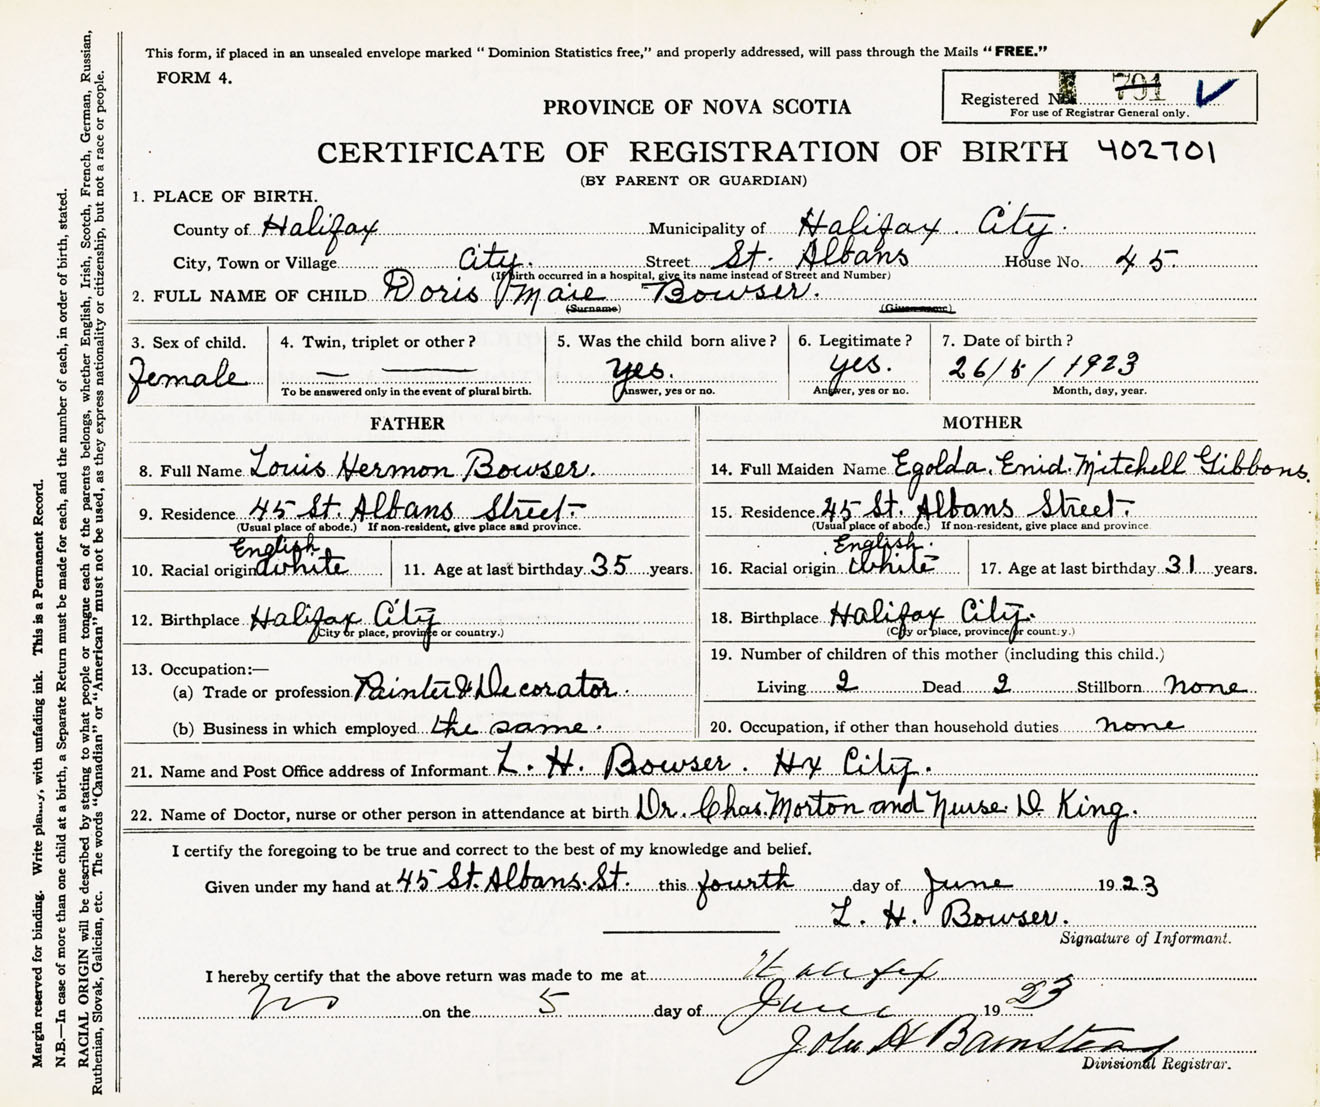 This form, if placed in an unsealed envelope marked "Dominion Statistics free," and properly addressed, will pass through the Mails "FREE."
FORM 4.
Registered No. 701
For use of Registrar General only.
PROVINCE OF NOVA SCOTIA
CERTIFICATE OF REGISTRATION OF BIRTH 402701
(BY PARENT OR GUARDIAN)
1. PLACE OF BIRTH.
County of Halifax Municipality of Halifax City.
City, Town or Village City. Street St. Albans House No. 45.
(If birth occurred in a hospital, give its name instead of Street and Number)
2. FULL NAME OF CHILD Doris Maie Bowser.
(Surname) (Given name)
3. Sex of child. 4. Twin, triplet or other? 5. Was the child born alive? 6. Legitimate? 7. Date of birth?
Female — — yes. yes. 26/5/1923
To be answered only in the event of plural birth. Answer, yes or no. Answer, yes or no. Month, day, year.
FATHER MOTHER
8. Full Name Louis Hermon Bowser. 14. Full Maiden Name Egolda. Enid. Mitchell Gibbons.
9. Residence 45 St. Albans Street. 15. Residence 45 St. Albans Street.
(Usual place of abode.) If non-resident, give place and province. (Usual place of abode.) If non-resident, give place and province
English English.
10. Racial origin White 11. Age at last birthday 35 years. 16. Racial origin White 17. Age at last birthday 31 years.
12. Birthplace Halifax City 18. Birthplace Halifax City.
(City or place, province or country.) (City or place, province or country.)
13. Occupation:— 19. Number of children of this mother (including this child.)
(a) Trade or profession Painter & Decorator. Living 2 Dead 2 Stillborn none
(b) Business in which employed the same. 20. Occupation, if other than household duties none
21. Name and Post Office address of Informant L. H. Bowser. Hx City.
22. Name of Doctor, nurse or other person in attendance at birth Dr. Chas. Morton and Nurse D. King.
I certify the foregoing to be true and correct to the best of my knowledge and belief.
Given under my hand at 45 St. Albans. St. this fourth day of June 1923
L. H. Bowser.
Signature of Informant.
I hereby certify that the above return was made to me at Halifax
on the 5 day of June 1923
John H Barnstead
Divisional Registrar.
Margin reserved for binding. Write plainly, with unfading ink. This is a Permanent Record.
N.B.—In case of more than one child at a birth, a Separate Return must be made for each, and the number of each, in order of birth, stated.
RACIAL ORIGIN will be described by stating to what people or tongue each of the parents belongs, whether English, Irish, Scotch, French, German, Russian,
Ruthenian, Slovak, Galician, etc. The words "Canadian" or "American" must not be used, as they express nationality or citizenship, but not a race or people.